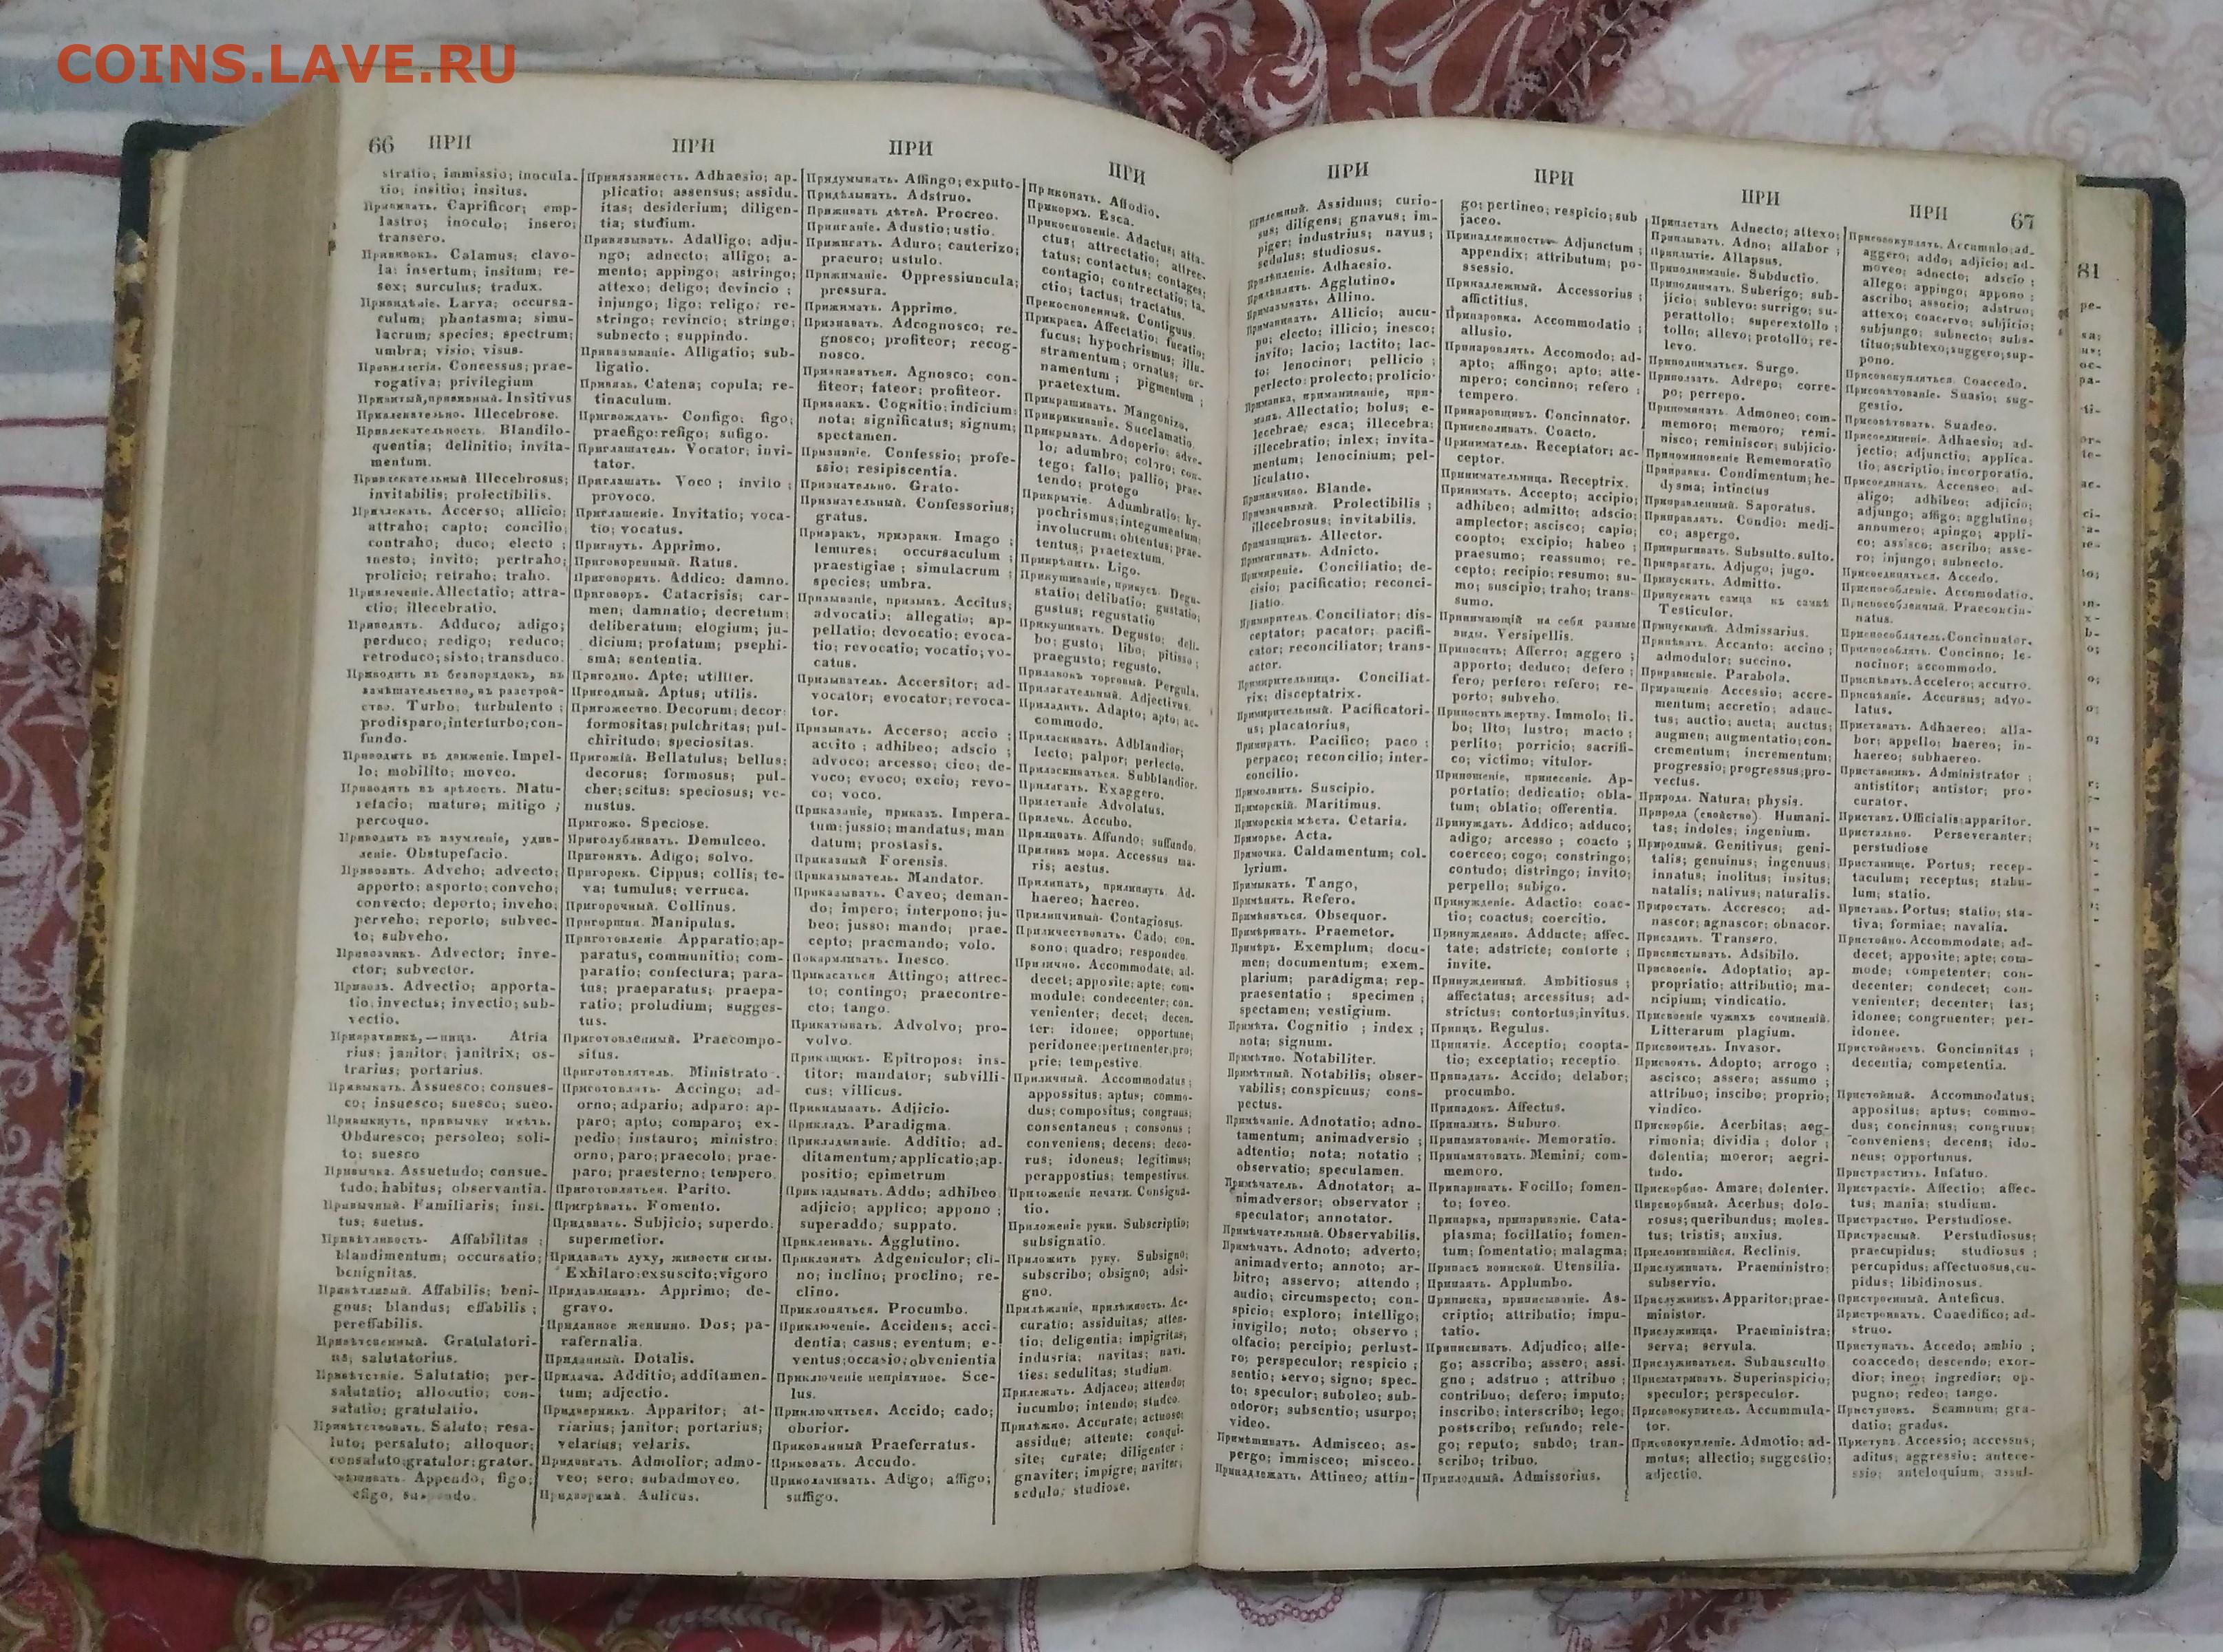 COINS.LAVE.RU
66 ПРИ ПРИ ПРИ ПРИ
stratio; immissio; inocula-
tio; insitio; insitus.
Прививать. Caprificor; emp-
lastro; inoculo; insero;
transero.
Прививокъ. Calamus; clavo-
la; insertum; insitum; re-
sex; surculus; tradux.
Привидѣніе. Larva; occursa-
culum; phantasma; simu-
lacrum; species; spectrum;
umbra; visio; visus.
Привилегія. Concessus; prae-
rogativa; privilegium
Привлекательно. Illecebrose.
Привлекательность. Blandilo-
quentia; delinitio; invita-
mentum.
Привлекательный Illecebrosus;
invitabilis; prolectibilis.
Привлекать. Accerso; allicio;
attraho; capto; concilio;
contraho; duco; electo;
inesto; invito; pertraho;
prolicio; retraho; traho.
Привлеченіе. Allectatio; attra-
ctio; illecebratio.
Приводить. Adduco; adigo;
perduco; redigo; reduco;
retroduco; sisto; transduco.
Приводить въ безпорядокъ, въ
замѣшательство, въ разстрой-
ство. Turbo; turbulento;
prodisparo; interturbo; con-
fundo.
Приводить въ движеніе. Impel-
lo; mobilito; moveo.
Приводить въ зрѣлость. Matu-
refacio; maturo; mitigo;
percoquo.
Приводить въ изумленіе, удив-
леніе. Obstupefacio.
Привозить. Adveho; advecto;
apporto; asporto; conveho;
convecto; deporto; inveho;
perveho; reporto; subvec-
to; subveho.
Привозчикъ. Advector; inve-
ctor; subvector.
Привозъ. Advectio; apporta-
tio; invectus; invectio; sub-
vectio.
Привратникъ,—ница. Atria
rius; janitor; janitrix; os-
trarius; portarius.
Привыкать. Assuesco; consues-
co; insuesco; suesco; sueo.
Привыкнуть, привычку имѣть.
Obduresco; persoleo; soli-
to; suesco
Привычка. Assuetudo; consue-
tudo; habitus; observantia.
Привычный. Familiaris; insi-
tus; suetus.
Привѣтливость. Affabilitas;
blandimentum; occursatio;
benignitas.
Привѣтливый. Affabilis; beni-
gnus; blandus; effabilis;
pereffabilis.
Привѣтственный. Gratulatori-
us; salutatorius.
Привѣтствіе. Salutatio; per-
salutatio; allocutio; con-
satatio; gratulatio.
Привѣтствовать. Saluto; resa-
luto; persaluto; alloquor;
consaluto; gratulor; grator.
Appendo; figo;
Привязанность. Adhaesio; ap-
plicatio; assensus; assidu-
itas; desiderium; diligen-
tia; studium.
Привязывать. Adalligo; adju-
ngo; adnecto; alligo; a-
mento; appingo; astringo;
attexo; deligo; devincio;
injungo; ligo; religo; re-
stringo; revincio; stringo;
subnecto; suppindo.
Привязываніе. Alligatio; sub-
ligatio.
Привязь. Catena; copula; re-
tinaculum.
Пригвождать. Configo; figo;
praefigo: refigo; sufigo.
Приглашатель. Vocator; invi-
tator.
Приглашать. Voco; invito;
provoco.
Приглашеніе. Invitatio; voca-
tio; vocatus.
Пригнуть. Apprimo.
Приговоренный. Ratus.
Приговорить. Addico: damno.
Приговоръ. Catacrisis; car-
men; damnatio; decretum;
deliberatum; elogium; ju-
dicium; profatum; psephi-
sma; sententia.
Пригодно. Apte; utiliter.
Пригодный. Aptus; utilis.
Пригожество. Decorum; decor;
formositas; pulchritas; pul-
chiritudo; speciositas.
Пригожій. Bellatulus; bellus;
decorus; formosus; pul-
cher; scitus; speciosus; ve-
nustus.
Пригожо. Speciose.
Приголубливать. Demulceo.
Пригонять. Adigo; solvo.
Пригорокъ. Cippus; collis; te-
va; tumulus; verruca.
Пригорочный. Collinus.
Пригоршня. Manipulus.
Приготовленіе Apparatio; ap-
paratus, communitio; com-
paratio; confectura; para-
tus; praeparatus; praepa-
ratio; proludium; sugges-
tus.
Приготовленный. Praecompo-
situs.
Приготовлятель. Ministrato.
Приготовлять. Accingo; ad-
orno; adpario; adparo; ap-
paro; apto; comparo; ex-
pedio; instauro; ministro;
orno; paro; praecolo; prae-
paro; praesterno; tempero.
Приготовляться. Parito.
Пригрѣвать. Fomento.
Придавать. Subjicio; superdo;
supermetior.
Придавать духу, живости силы.
Exhilaro; exsuscito; vigoro
Придавливать. Apprimo; de-
gravo.
Приданное женнино. Dos; pa-
rafernalia.
Приданный. Dotalis.
Придача. Additio; additamen-
tum; adjectio.
Придверникъ. Apparitor; at-
riarius; janitor; portarius;
velarius; velaris.
Придвигать. Admolior; admo-
veo; sero; subadmoveo.
Придворный. Aulicus.
Придумывать. Affingo; exputo
Придѣлывать. Adstruo.
Приживать дѣтей. Procreo.
Прижиганіе. Adustio; ustio.
Прижигать. Aduro; cauterizo;
praeuro; ustulo.
Прижиманіе. Oppressiuncula;
pressura.
Прижимать. Apprimo.
Признавать. Adcognosco; re-
gnosco; profiteor; recog-
nosco.
Признаваться. Agnosco; con-
fiteor; fateor; profiteor.
Признакъ. Cognitio; indicium;
nota; significatus; signum;
spectamen.
Признаніе. Confessio; profe-
ssio; resipiscentia.
Признательно. Grato.
Признательный. Confessorius;
gratus.
Призракъ, призраки. Imago;
lemures; occursaculum;
praestigiae; simulacrum;
species; umbra.
Призываніе, призывъ. Accitus;
advocatio; allegatio; ap-
pellatio; devocatio; evoca-
tio; revocatio; vocatio; vo-
catus.
Призыватель. Accersitor; ad-
vocator; evocator; revoca-
tor.
Призывать. Accerso; accio;
accito; adhibeo; adscio;
advoco; arcesso; cico; de-
voco; evoco; excio; revo-
co; voco.
Приказаніе, приказъ. Impera-
tum; jussio; mandatus; man
datum; prostasis.
Приказный Forensis.
Приказыватель. Mandator.
Приказывать. Caveo; deman-
do; impero; interpono; ju-
beo; jusso; mando; prae-
cepto; praemando; volo.
Покармливать. Inesco.
Прикасаться Attingo; attrec-
to; contingo; praecontre-
cto; tango.
Прикатывать. Advolvo; pro-
volvo.
Прикащикъ. Epitropos; ins-
titor; mandator; subvilli-
cus; villicus.
Прикидывать. Adjicio.
Прикладъ. Paradigma.
Прикладываніе. Additio; ad-
ditamentum; applicatio; ap-
positio; epimetrum
Прикладывать. Addo; adhibeo
adjicio; applico; appono;
superaddo; suppato.
Приклеивать. Agglutino.
Приклонять Adgeniculor; cli-
no; inclino; proclino; re-
clino.
Приклоняться. Procumbo.
Приключеніе. Accidens; acci-
dentia; casus; eventum; e-
ventus; occasio; obvenientia
Приключеніе непріятное. Sce-
lus.
Приключиться. Accido; cado;
oborior.
Прикованный Praeferratus.
Приковать. Accudo.
Приколачивать. Adigo; affigo;
suffigo.
Приконать. Affodio.
Прикормъ. Esca.
Прикосновеніе. Adactus; atta-
ctus; attrectatio; attrec-
tatus; contactus; contages;
contagio; contrectatio; ta-
ctio; tactus; tractatus.
Прекосновенный. Contiguus.
Прикраса. Affectatio; fucatio;
fucus; hypochrismus; illu-
stramentum; ornatus; or-
namentum; pigmentum;
praetextum.
Прикрашивать. Mangonizo.
Прикрикиваніе. Succlamatio.
Прикрывать. Adoperio; adve-
lo; adumbro; coloro; con-
tego; fallo; pallio; prae-
tendo; protego
Прикрытіе. Adumbratio; hy-
pochrismus; integumentum;
involucrum; obtentus; prae-
tentus; praetextum.
Прикрѣпить. Ligo.
Прикушиваніе, прикусъ. Degu-
statio; delibatio; gustatio;
gustus; regustatio
Прикушивать. Degusto; deli-
bo; gusto; libo; pitisso;
praegusto; regusto.
Прилавокъ торговый. Pergula.
Прилагательный. Adjectivus.
Приладить. Adapto; apto; ac-
commodo.
Приласкивать. Adblandior;
lecto; palpor; perlecto.
Приласкиваться. Subblandior.
Прилагать. Exaggero.
Прилетаніе Advolatus.
Прилечь. Accubo.
Приливать. Affundo; suffundo.
Приливъ моря. Accessus ma-
ris; aestus.
Прилипать, прилипнуть Ad-
haereo; haereo.
Прилипчивый. Contagiosus.
Приличествовать. Cado; con-
sono; quadro; respondeo.
Прилично. Accommodate; ad-
decet; apposite; apte; com-
module; condecenter; con-
venienter; decet; decen-
ter; idonee; opportune;
peridonee; pertinenter; pro;
prie; tempestive.
Приличный. Accommodatus;
appositus; aptus; commo-
dus; compositus; congruus;
consentaneus; consonus;
conveniens; decens; deco-
rus; idoneus; legitimus;
perappostius; tempestivus.
Приложеніе печати. Consigna-
tio.
Приложеніе руки. Subscriptio;
subsignatio.
Приложить руку. Subsigno;
subscribo; obsigno; adsi-
gno.
Прилѣжаніе, прилѣжность. Ac-
curatio; assiduitas; atten-
tio; deligentia; impigritas;
indusria; navitas; navi-
ties; sedulitas; studium.
Прилежать. Adjaceo; attendo;
incumbo; intendo; studeo.
Прилѣжно. Accurate; actuose;
assidue; attente; conqui-
site; curate; diligenter;
gnaviter; impigre; naviter;
sedulo; studiose.
ПРИ ПРИ ПРИ ПРИ 67
Прилежный. Assiduus; curio-
sus; diligens; gnavus; im-
piger; industrius; navus;
sedulus; studiosus.
Прилѣпленіе. Adhaesio.
Прилѣплять. Agglutino.
Примазывать. Allino.
Приманивать. Allicio; aucu-
po; electo; illicio; inesco;
invito; lacio; lactito; lac-
to; lenocinor; pellicio;
perlecto; prolecto; prolicio.
Приманка, приманиваніе, при-
манъ. Allectatio; bolus; e-
lecebrae; esca; illecebra;
illecebratio; inlex; invita-
mentum; lenocinium; pel-
liculatio.
Приманчиво. Blande.
Приманчивый. Prolectibilis;
illecebrosus; invitabilis.
Приманщикъ. Allector.
Примигивать. Adnicto.
Примиреніе. Conciliatio; de-
cisio; pacificatio; reconci-
liatio.
Примиритель. Conciliator; dis-
ceptator; pacator; pacifi-
cator; reconciliator; trans-
actor.
Примирительница. Conciliat-
rix; disceptatrix.
Примирительный. Pacificatori-
us; placatorius,
Примирять. Pacifico; paco;
perpaco; reconcilio; inter-
concilio.
Примолвить. Suscipio.
Приморскій. Maritimus.
Приморскія мѣста. Cetaria.
Приморье. Acta.
Примочка. Caldamentum; col-
lyrium.
Примыкать. Tango,
Примѣнять. Refero.
Примѣняться. Obsequor.
Примѣривать. Praemetor.
Примѣръ. Exemplum; docu-
men; documentum; exem-
plarium; paradigma; rep-
praesentatio; specimen;
spectamen; vestigium.
Примѣта. Cognitio; index;
nota; signum.
Примѣтно. Notabiliter.
Примѣтный. Notabilis; obser-
vabilis; conspicuus; cons-
pectus.
Примѣчаніе. Adnotatio; adno-
tamentum; animadversio;
adtentio; nota; notatio;
observatio; speculamen.
Примѣчатель. Adnotator; a-
nimadversor; observator;
speculator; annotator.
Примѣчательный. Observabilis.
Примѣчать. Adnoto; adverto;
animadverto; annoto; ar-
bitro; asservo; attendo;
audio; circumspecto; con-
spicio; exploro; intelligo;
invigilo; noto; observo;
olfacio; percipio; perlust-
ro; perspeculor; respicio;
sentio; servo; signo; spec-
to; speculor; suboleo; sub-
odoror; subsentio; usurpo;
video.
Примѣшивать. Admisceo; as-
pergo; immisceo; misceo.
Принадлежать. Attineo; attin-
go; pertineo; respicio; sub
jaceo.
Принадлежность. Adjunctum;
appendix; attributum; po-
ssessio.
Принадлежный. Accessorius;
affictitius.
Принаровка. Accommodatio;
allusio.
Принаровлять. Accomodo; ad-
apto; affingo; apto; atte-
mpero; concinno; refero;
tempero.
Принаровщикъ. Concinnator.
Приневоливать. Coacto.
Приниматель. Receptator; ac-
ceptor.
Принимательница. Receptrix.
Принимать. Accepto; accipio;
adhibeo; admitto; adscio;
amplector; ascisco; capio;
coopto; excipio; habeo;
praesumo; reassumo; re-
cepto; recipio; resumo; su-
mo; suscipio; traho; trans-
sumo.
Принимающій на себя разные
виды. Versipellis.
Приносить; Afferro; aggero;
apporto; deduco; defero;
fero; perfero; refero; re-
porto; subveho.
Приносить жертву. Immolo; li-
bo; lito; lustro; macto;
perlito; porricio; sacrifi-
co; victimo; vitulor.
Приношеніе, принесеніе. Ap-
portatio; dedicatio; obla-
tum; oblatio; offerentia.
Принуждать. Addico; adduco;
adigo; arcesso; coacto;
coerceo; cogo; constringo;
contudo; distringo; invito;
perpello; subigo.
Принужденіе. Adactio; coac-
tio; coactus; coercitio.
Принужденно. Adducte; affec-
tate; adstricte; contorte;
invite.
Принужденный. Ambitiosus;
affectatus; arcessitus; ad-
strictus; contortus; invitus.
Принцъ. Regulus.
Принятіе. Acceptio; coopta-
tio; exceptatio; receptio.
Припадать. Accido; delabor;
procumbo.
Припадокъ. Affectus.
Припалить. Suburo.
Припаматованіе. Memoratio.
Припаматовать. Memini; com-
memoro.
Припаривать. Focillo; fomen-
to; foveo.
Припарка, припариваніе. Cata-
plasma; focillatio; fomen-
tum; fomentatio; malagma;
Припасъ воинской. Utensilia.
Припаять. Applumbo.
Приписка, приписываніе. As-
criptio; attributio; impu-
tatio.
Приписывать. Adjudico; alle-
go; asscribo; assero; assi-
gno; adstruo; attribuo;
contribuo; defero; imputo;
inscribo; interscribo; lego;
postscribo; refundo; rele-
go; reputo; subdo; tran-
scribo; tribuo.
Приплодный. Admissorius.
Приплетать Adnecto; attexo;
Приплывать. Adno; allabor;
Приплытіе. Allapsus.
Приподниманіе. Subductio.
Приподнимать. Suberigo; sub-
jicio; sublevo; surrigo; su-
perattollo; superextollo;
tollo; allevo; protollo; re-
levo.
Приподниматься. Surgo.
Приползать. Adrepo; corre-
po; perrepo.
Припоминать. Admoneo; com-
memoro; memoro; remi-
nisco; reminiscor; subjicio.
Припоминовеніе Rememoratio
Приправка. Condimentum; he-
dysma; intinctus
Приправленный. Saporatus.
Приправлять. Condio; medi-
co; aspergo.
Припрыгивать. Subsulto. sulto.
Припрягать. Adjugo; jugo.
Припускать. Admitto.
Припускать самца къ самкѣ
Testiculor.
Припускный. Admissarius.
Припѣвать. Accanto; accino;
admodulor; succino.
Приравненіе. Parabola.
Приращеніе Accessio; accre-
mentum; accretio; adauc-
tus; auctio; aucta; auctus;
augmen; augmentatio; con-
crementum; incrementum;
progressio; progressus; pro-
vectus.
Природа. Natura; physis.
Природа (свойство). Humani-
tas; indoles; ingenium.
Природный. Genitivus; geni-
talis; genuinus; ingenuus;
innatus; inolitus; insitus;
natalis; nativus; naturalis.
Приростать. Accresco; ad-
nascor; agnascor; obnacor.
Присадить. Transero.
Присвистывать. Adsibilo.
Присвоеніе. Adoptatio; ap-
propriatio; attributio; ma-
ncipium; vindicatio.
Присвоеніе чужихъ сочиненій.
Litterarum plagium.
Присвоитель. Invasor.
Присвоять. Adopto; arrogo;
ascisco; assero; assumo;
attribuo; inscibo; proprio;
vindico.
Прискорбіе. Acerbitas; aeg-
rimonia; dividia; dolor;
dolentia; moeror; aegri-
tudo.
Прискорбно. Amare; dolenter.
Прискорбный. Acerbus; dolo-
rosus; queribundus; moles-
tus; tristis; anxius.
Прислонившійся. Reclinis.
Прислуживать. Praeministro;
subservio.
Прислужникъ. Apparitor; prae-
minister.
Прислужница. Praeministra;
serva; servula.
Прислуживаться. Subausculto
Присматривать. Superinspicio;
speculor; perspeculor.
Присовокупитель. Accummula-
tor.
Присовокупленіе. Admotio; ad-
motus; allectio; suggestio;
adjectio.
Присовокуплять. Accumulo; ad-
aggero; addo; adjicio; ad-
moveo; adnecto; adscio;
allego; appingo; appono;
ascribo; associo; adstruo;
attexo; coacervo; subjicio;
subjungo; subnecto; subs-
tituo; subtexo; suggero; sup-
pono.
Присовокупляться. Coaccedo.
Присовѣтованіе. Suasio; sug-
gestio.
Присовѣтовать. Suadeo.
Присоединеніе. Adhaesio; ad-
jectio; adjunctio; applica-
tio; ascriptio; incorporatio.
Присоединять. Accenseo; ad-
aligo; adhibeo; adjicio;
adjungo; affigo; agglutino;
annumero; apingo; appli-
co; assisco; ascribo; asse-
ro; injungo; subnecto.
Присоединяться. Accedo.
Приспособленіе. Accomodatio.
Приспособленный. Praeconcin-
natus.
Приспособлятель. Concinnator.
Приспособлять. Concinno; le-
nocinor; accommodo.
Приспѣвать. Accelero; accurro.
Приспѣяніе. Accursus; advo-
latus.
Приставать. Adhaereo; alla-
bor; appello; haereo; in-
haereo; subhaereo.
Приставникъ. Administrator;
antistitor; antistor; pro-
curator.
Приставъ. Officialis; apparitor.
Пристально. Perseveranter;
perstudiose
Пристанище. Portus; recep-
taculum; receptus; stabu-
lum; statio.
Пристань. Portus; statio; sta-
tiva; formiae; navalia.
Пристойно. Accommodate; ad-
decet; apposite; apte; com-
mode; competenter; con-
decenter; condecet; con-
venienter; decenter; fas;
idonee; congruenter; per-
idonee.
Пристойность. Concinnitas;
decentia; competentia.
Пристойный. Accommodatus;
appositus; aptus; commo-
dus; concinnus; congruus;
conveniens; decens; ido-
neus; opportunus.
Пристрастить. Infatuo.
Пристрастіе. Affectio; affec-
tus; mania; studium.
Пристрастно. Perstudiose.
Пристрасный. Perstudiosus;
praecupidus; studiosus;
percupidus; affectuosus, cu-
pidus; libidinosus.
Пристроенный. Anteficus.
Пристроивать. Coaedifico; ad-
struo.
Приступать. Accedo; ambio;
coaccedo; descendo; exor-
dior; ineo; ingredior; op-
pugno; redeo; tango.
Приступокъ. Scamnum; gra-
datio; gradus.
Приступъ. Accessio; accessus;
aditus; aggressio; antece-
ssio; anteloquium, assul-
81